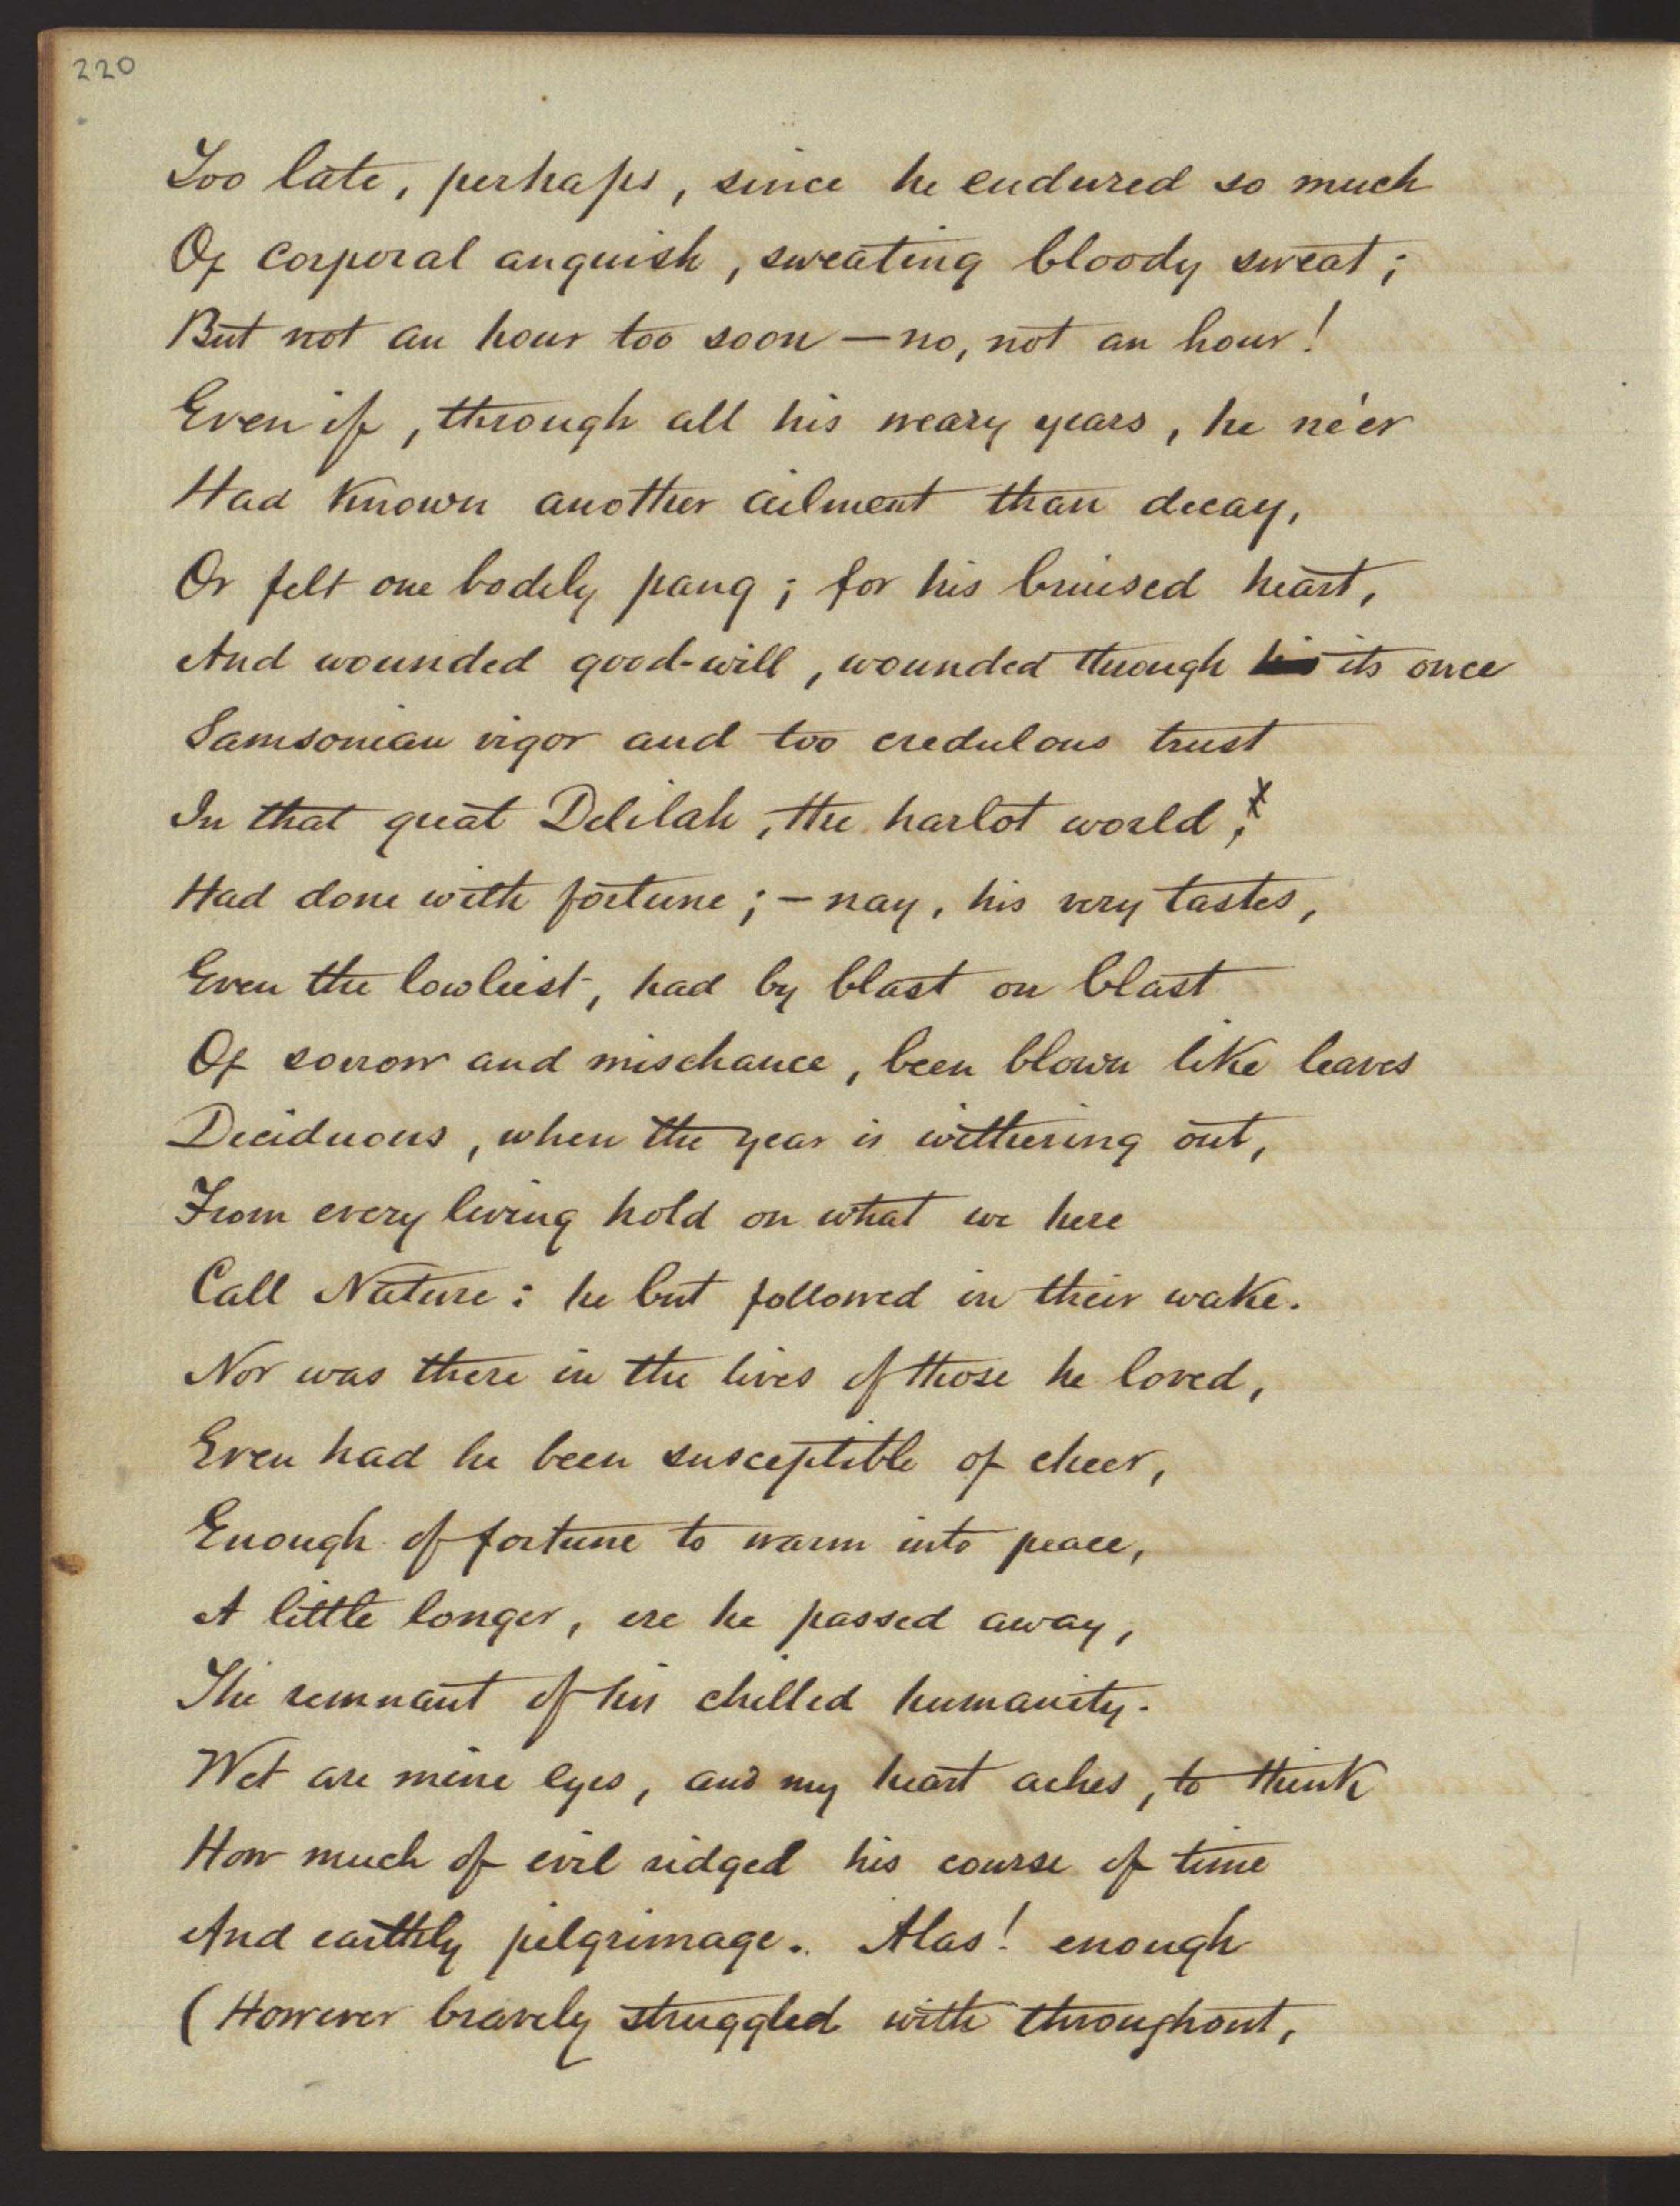 220
Too late, perhaps, since he endured so much
Of corporal anguish, sweating bloody sweat;
But not an hour too soon — no, not an hour!
Even if, through all his weary years, he ne'er
Had known another ailment than decay,
Or felt one bodily pang; for his bruised heart,
And wounded good-will, wounded through its once
Samsonian vigor and too credulous trust
In that great Delilah, the harlot world,
Had done with fortune; — nay, his very tastes,
Even the lowliest, had by blast on blast
Of sorrow and mischance, been blown like leaves
Deciduous, when the year is withering out,
From every living hold on what we here
Call Nature: he but followed in their wake.
Nor was there in the lives of those he loved,
Even had he been susceptible of cheer,
Enough of fortune to warm into peace,
A little longer, ere he passed away,
The remnant of his chilled humanity.
Wet are mine eyes, and my heart aches, to think
How much of evil ridged his course of time
And earthly pilgrimage. Alas! enough
(However bravely struggled with throughout,